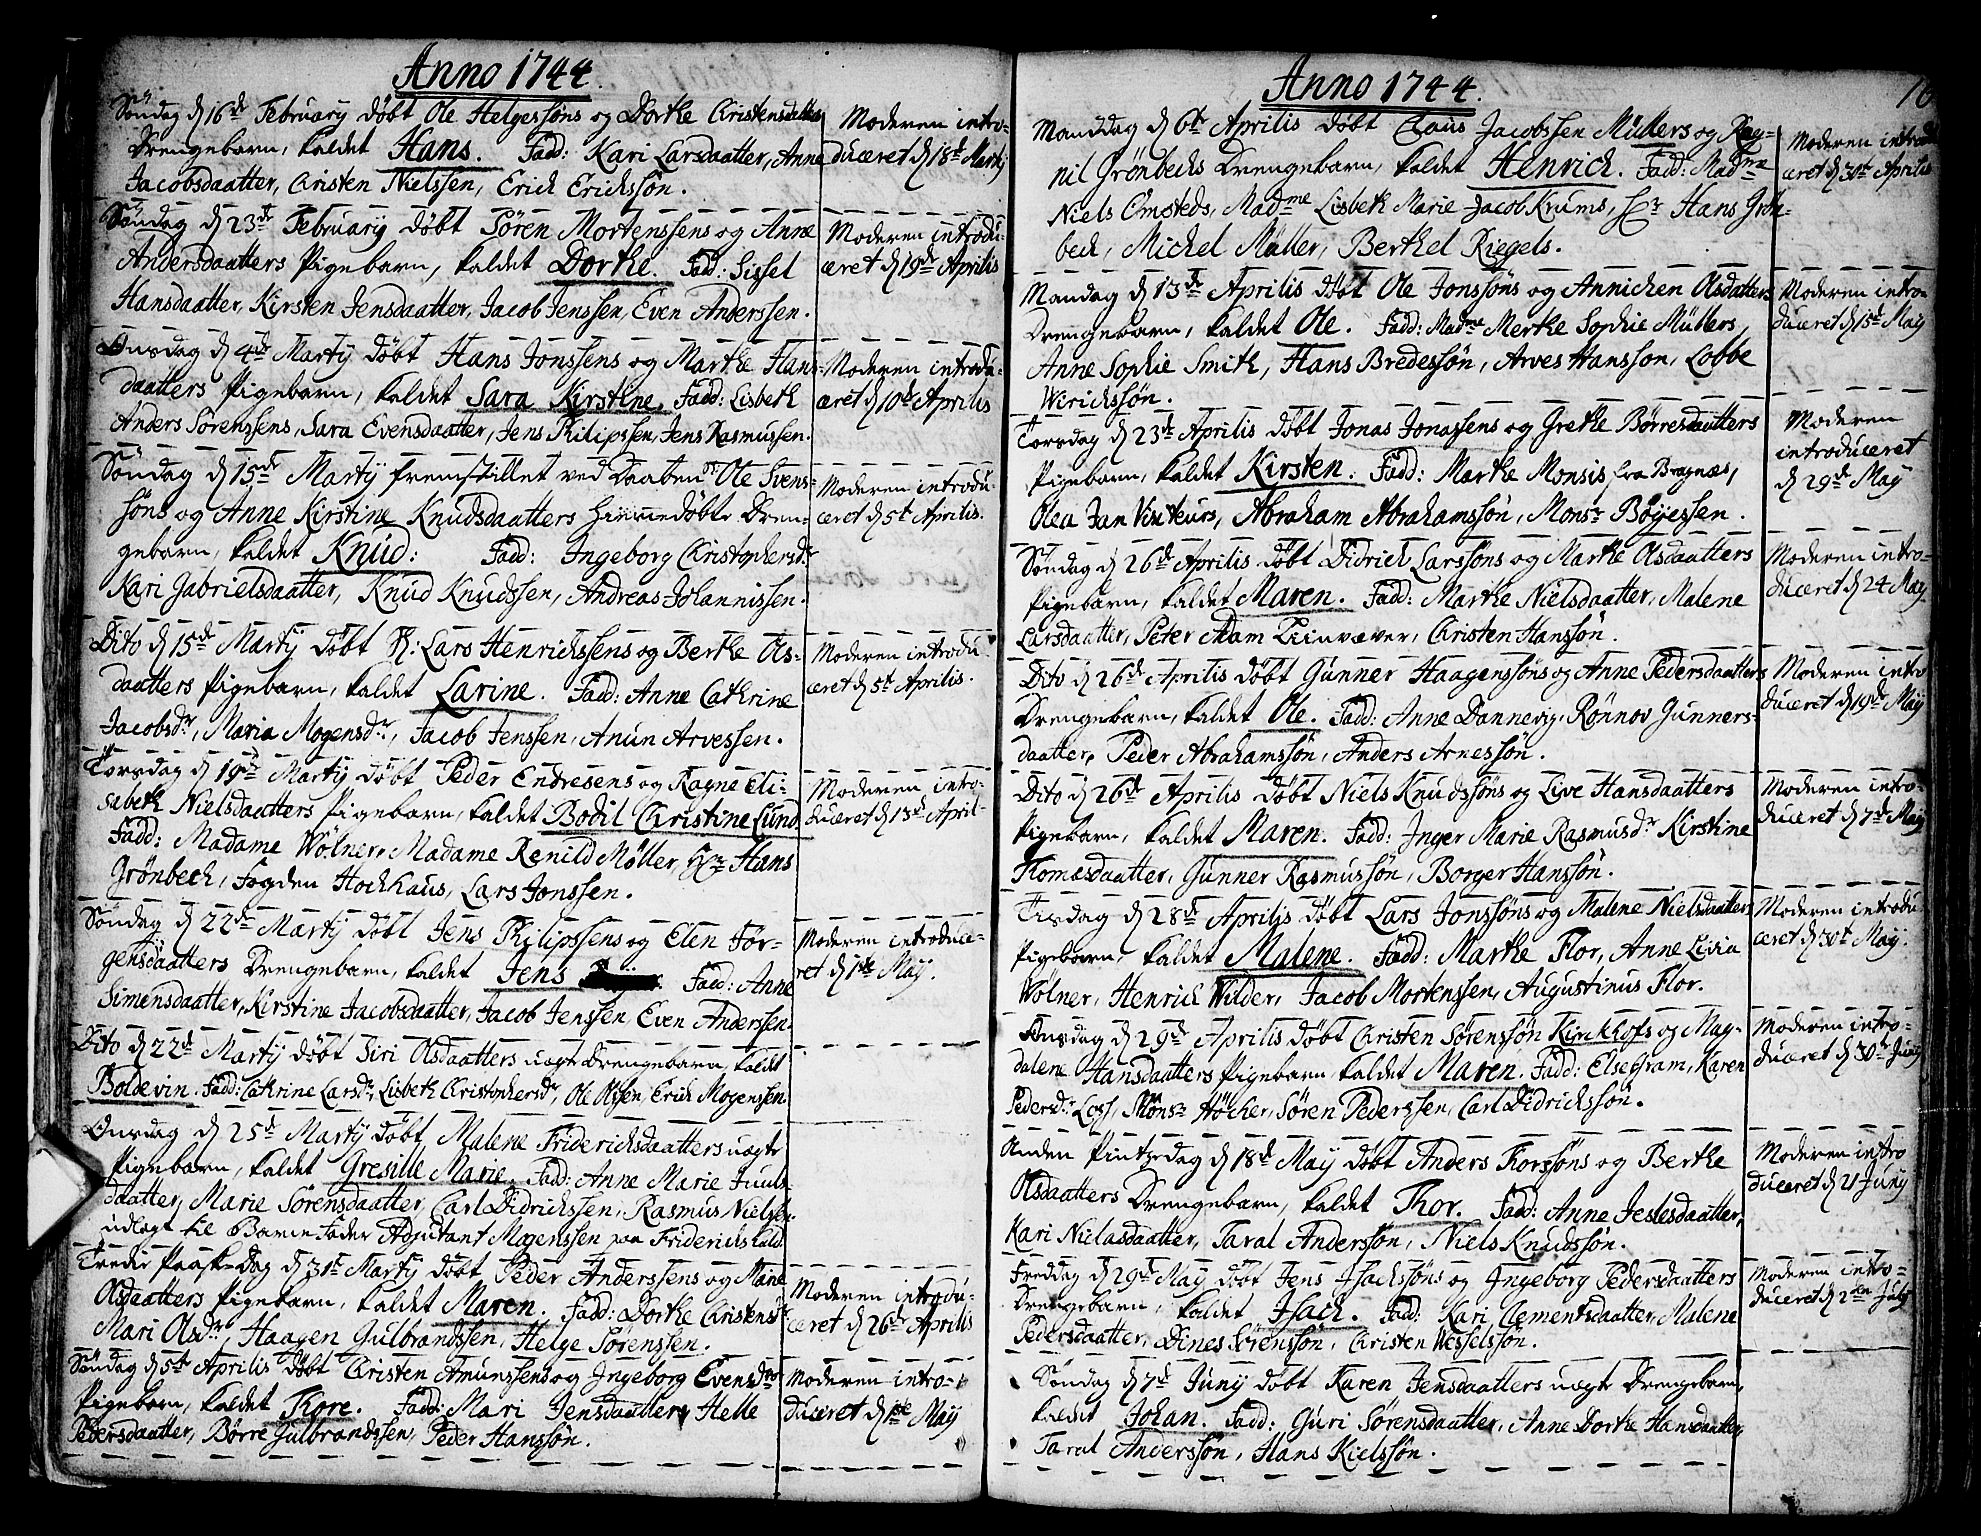 Anno 1744.
Søndag d 16de February døbt Ole Helgessøns og Dorthe Christensdaatters
Drengebarn, kaldet Hans. Fadd: Kari Larsdaatter, Anne
Jacobsdaatter, Christen Nielssen, Erich Erichssøn.
Moderen intro-
duceret d 18de Martij
Søndag d 23de February døbt Søren Mortenssens og Anne
Andersdaatters Pigebarn, kaldet Dorthe. Fad: Sissel
Hansdaatter, Kirsten Jensdaatter, Jacob Jenssen, Even Anderssen.
Moderen introdu-
ceret d 19de Aprilis
Onsdag d 4de Martij døbt Hans Jonssens og Marthe Hans-
daatters Pigebarn, kaldet Sara Kirstine. Fadd: Lisbeth
Anders Sørenssens, Sara Evensdaatter, Jens Philipssen, Jens Rasmussen.
Moderen introdu-
ceret d 10de Aprilis
Søndag d 15de Martij fremstillet ved Daaben Ole Svens-
søns og Anne Kirstine Knudsdaatters hiemmedøbte Dren-
gebarn, kaldet Knud: Fadd: Ingeborg Christophersdr
Kari Gabrielsdaatter, Knud Knudssen, Andreas Johannissen.
Moderen introdu-
ceret d 5te Aprilis.
Dito d 15de Martij døbt Lars Henrichssens og Berthe Ols-
daatters Pigebarn, kaldet Larine. Fadd: Anne Cathrine
Jacobsdr, Maria Mogensdr, Jacob Jenssen, Anun Arvessen.
Moderen introdu-
ceret d 5te Aprilis.
Torsdag d 19de Martij døbt Peder Endresens og Ragne Eli-
sabeth Nielsdaatters Pigebarn, kaldet Bodil Christine Lund
Fadd: Madame Wølner, Madame Renild Møller, Hr Hans
Grønbech, Fogden Hochhaus, Lars Jonssen.
Moderen intro-
duceret d 13de April-
Søndag d 22de Martij døbt Jens Philipssens og Elen Jør-
gensdaatters Drengebarn, kaldet Jens Fadd: Anne
Simensdaatter, Kirstine Jacobsdaatter, Jacob Jenssen, Even Anderssen.
Moderen introduce-
ret d 1ste May.
Dito d 22de Martij døbt Siri Olsdaatters uægte Drengebarn, kaldt
Boldevin. Fadd: Cathrine Larsdr, Lisbeth Christophersdr, Ole Olssen, Erich Mogenssen
Onsdag d 25de Martij døbt Malene Friderichsdaatters uægte
Pigebarn, kaldet Gresille Marie. Fadd: Anne Marie Juuls-
daatter, Marie Sørensdaatter, Carl Didrichssen, Rasmus Nielssen.
udlagt til Barne Fader Adjutant Mogenssen paa Friderichshald.
Tredie Paaske-Dag d 31te Martij døbt Peder Anderssens og Mane
Olsdaatters Pigebarn, kaldet Maren. Fadd: Dorthe Christensdr
Mari Olsdr, Haagen Gulbrandssen, Helge Sørenssen.
Moderen introdu-
ceret d 26de Aprilis
Søndag d 5te Aprilis døbt Christen Amunssens og Ingeborg Evensdrs
Pigebarn, kaldet Thore. Fadd: Mari Jensdaatter, Helle
Pedersdaatter, Børre Gulbrandssen, Peder Hanssøn.
Moderen intro-
duceret d 1ste May
Anno 1744.
Manddag d 6te Aprilis døbt Claus Jacobssen Müllers og Rag-
nil Grønbechs Drengebarn, kaldet Henrich. Fadd: Madme
Niels Omsteds, Madme Lisbeth Marie Jacob Krums, Hr Hans Grøn-
bech, Michel Müller, Berthel Riegels.
Moderen introdu
ceret d 30te Aprilis
Mandag d 13de Aprilis døbt Ole Jonssøns og Annichen Olsdatters
Drengebarn, kaldet Ole. Fadd: Madme Merthe Sophie Müllers,
Anne Sophie Smith, Hans Bredessøn, Arves Hansson, Lobbe
Wirichssøn.
Moderen intro-
duceret d 15de May
Torsdag d 23de Aprilis døbt Jonas Jonassens og Grethe Børresdaatters
Pigebarn, kaldet Kirsten. Fadd: Marthe Monsis fra Bragnæs,
Olea Jan Visiteurs, Abraham Abrahamssøn, Monsr Bøyessen.
Moderen
introduceret
d 29de May
Søndag d 26de Aprilis døbt Didrich Larssøns og Marthe Olsdaatters
Pigebarn, kaldet Maren. Fadd: Marthe Nielsdaatter, Malene
Larsdaatter, Peter Adam Linvæver, Christen Hanssøn.
Moderen intro-
duceret d 24 May
Dito d 26de Aprilis døbt Gunner Haagenssøns og Anne Pedersdaatters
Drengebarn, kaldet Ole. Fadd: Anne Dannevig, Rønnov Gunners-
daatter, Peder Abrahamssøn, Anders Arnessøn.
Moderen intro
duceret d 19de May
Dito d 26de Aprilis døbt Niels Knudssøns og Live Hansdaatters
Pigebarn, kaldet Maren. Fadd: Inger Marie Rasmusdr Kirstine
Thomasdaatter, Gunner Rasmussøn, Borger Hanssøn.
Moderen intro-
duceret d 7de May
Tisdag d 28de Aprilis døbt Lars Jonssøns og Malene Nielsdaatters
Pigebarn, kaldet Malene. Fadd: Marthe Flor, Anne Livia
Wølner, Henrich Wilder, Jacob Mortenssen, Augustinus Flor.
Moderen introdu-
ceret d 30te May.
Onsdag d 29de Aprilis døbt Christen Sørenssøn Kirchhofs og Mag-
dalene Hansdaatters Pigebarn, kaldet Maren. Fadd: Else Gram, Karen
Pedersdr Loss, Monsr Høcher, Søren Pederssen, Carl Didrichssøn.
Moderen intro-
duceret d 30te Juny
Anden Pintzedag d 18de May døbt Anders Thorssøns og Berthe
Olsdaatters Drengebarn, kaldet Thor. Fadd: Anne Jeslesdaatter,
Kari Niclasdaatter, Taral Anderssøn, Niels Knudssøn.
Moderen intro
duceret d 21 Juny
Fredag d 29de May døbt Jens Isachssøns og Ingeborg Pedersdaatters
Drengebarn, kaldet Isach. Fadd: Kari Clementsdaatter, Malene
Pedersdaatter, Dines Sørenssøn, Christen Wesselssøn.
Moderen intro-
duceret d 2den July
Søndag d 7de Juny døbt Karen Jensdaatters uægte Drengebarn,
kaldet Johan. Fadd: Guri Sørensdaatter, Anne Dorthe Hansdaatter,
Taral Anderssøn, Hans Kielssøn.